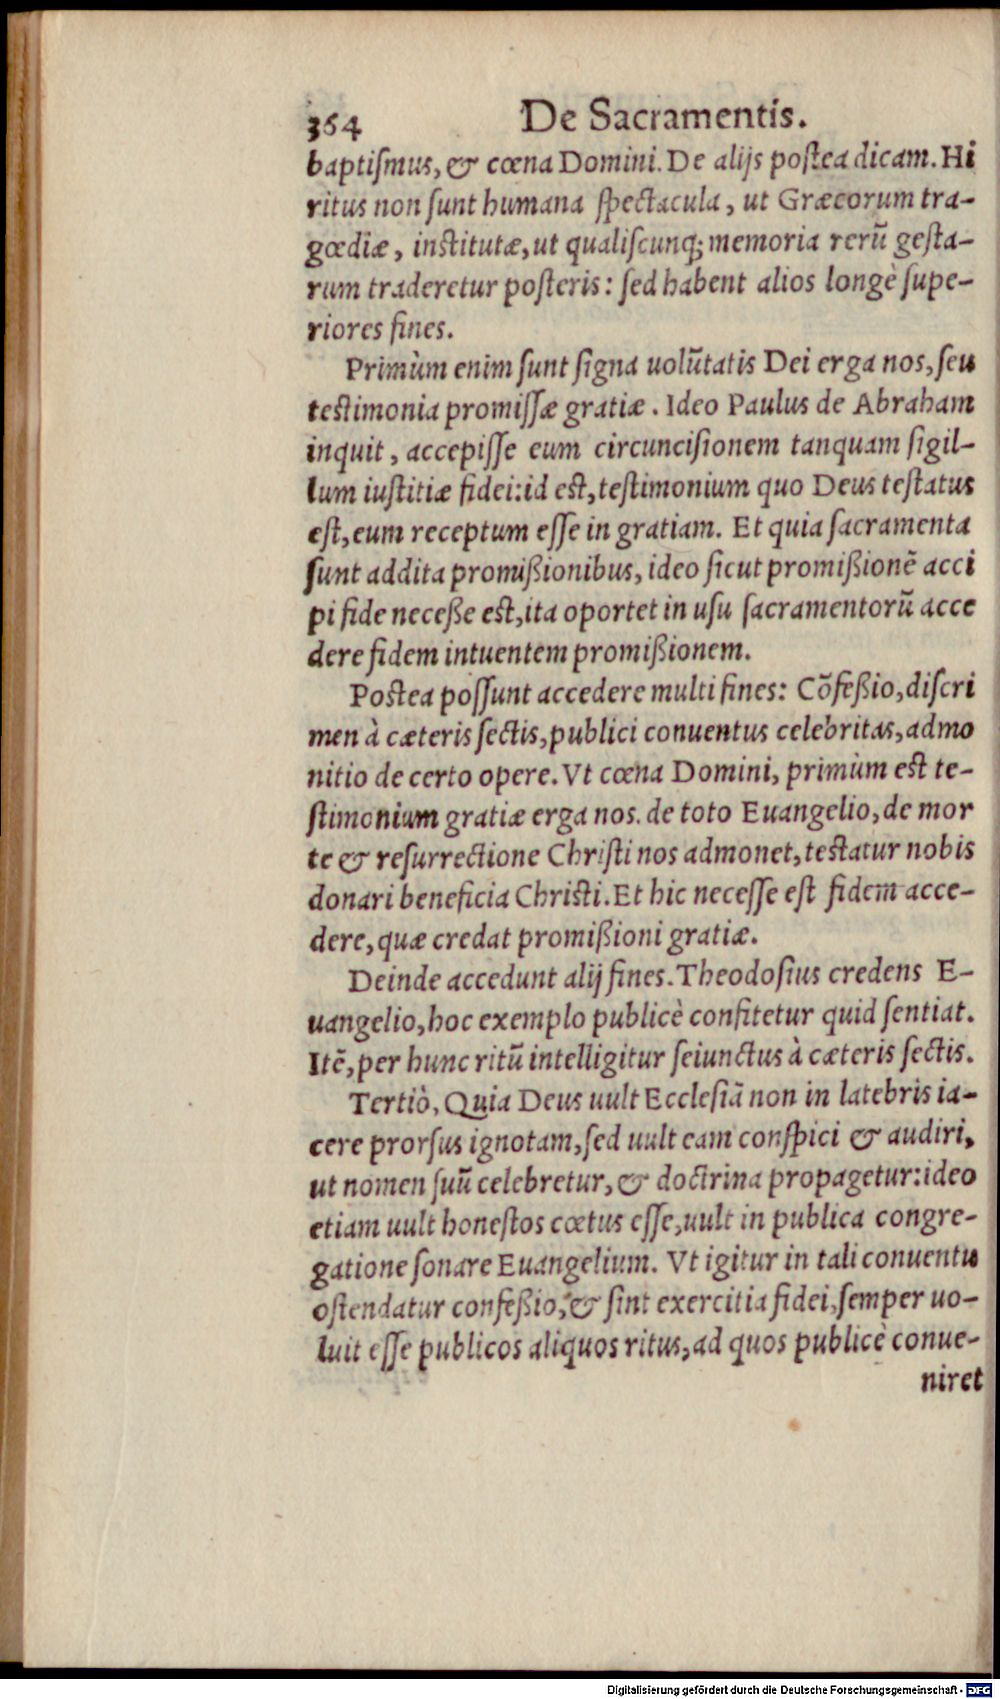 364 De Sacramentis.
baptiſmus, & cœna Domini. De alijs poſtea dicam. Hi
ritus non ſunt humana ſpectacula, ut Græcorum tra-
gœdiæ, inſtitutæ, ut qualiſcunq; memoria rerũ geſta-
rum traderetur poſteris: ſed habent alios longè ſupe-
riores fines.
Primùm enim ſunt ſigna uolũtatis Dei erga nos, ſeu
teſtimonia promiſſæ gratiæ. Ideo Paulus de Abraham
inquit, accepiſſe eum circunciſionem tanquam ſigil-
lum iuſtitiæ fidei: id eſt, teſtimonium quo Deus teſtatus
eſt, eum receptum eſſe in gratiam. Et quia ſacramenta
ſunt addita promißionibus, ideo ſicut promißionẽ acci
pi fide neceße eſt, ita oportet in uſu ſacramentorũ acce
dere fidem intuentem promißionem.
Poſtea poſſunt accedere multi fines: Cõfeßio, diſcri
men à cæteris ſectis, publici conuentus celebritas, admo
nitio de certo opere. Vt cœna Domini, primùm eſt te-
ſtimonium gratiæ erga nos. de toto Euangelio, de mor
te & reſurrectione Chriſti nos admonet, teſtatur nobis
donari beneficia Chriſti. Et hic neceſſe eſt fidem acce-
dere, quæ credat promißioni gratiæ.
Deinde accedunt alij fines. Theodoſius credens E-
uangelio, hoc exemplo publicè confitetur quid ſentiat.
Itẽ, per hunc ritũ intelligitur ſeiunctus à cæteris ſectis.
Tertiò, Quia Deus uult Eccleſiã non in latebris ia-
cere prorſus ignotam, ſed uult eam conſpici & audiri,
ut nomen ſuũ celebretur, & doctrina propagetur: ideo
etiam uult honeſtos cœtus eſſe, uult in publica congre-
gatione ſonare Euangelium. Vt igitur in tali conuentu
oſtendatur confeßio, & ſint exercitia fidei, ſemper uo-
luit eſſe publicos aliquos ritus, ad quos publicè conue-
niret
Digitalisierung gefördert durch die Deutsche Forschungsgemeinschaft - DFG